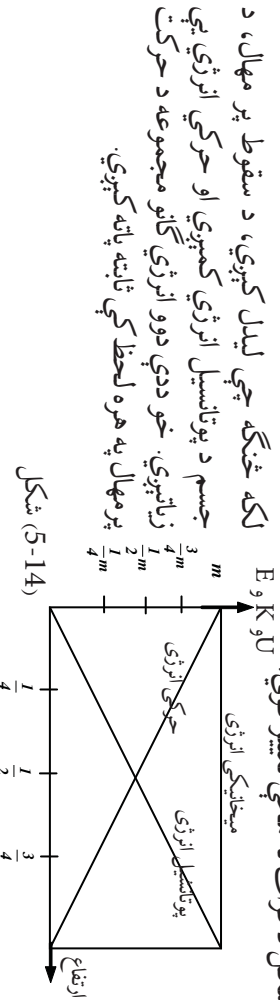 لکه څنګه چې لیدل کېږي، د سقوط پر مهال، د
جسم د پوتانسیل انرژي کمېږي او حرکي انرژي یې
زیاتېږي. خو ددې دوو انرژي ګانو مجموعه د حرکت
پر مهال په هره لحظه کې ثابته پاته کېږي.
E و K و U
m
3/4 m
1/2 m
1/4 m
میخانیکي انرژی
حرکي انرژی
پوتانسیل انرژی
1/4
1/2
3/4
ارتفاع
شکل (5-14)